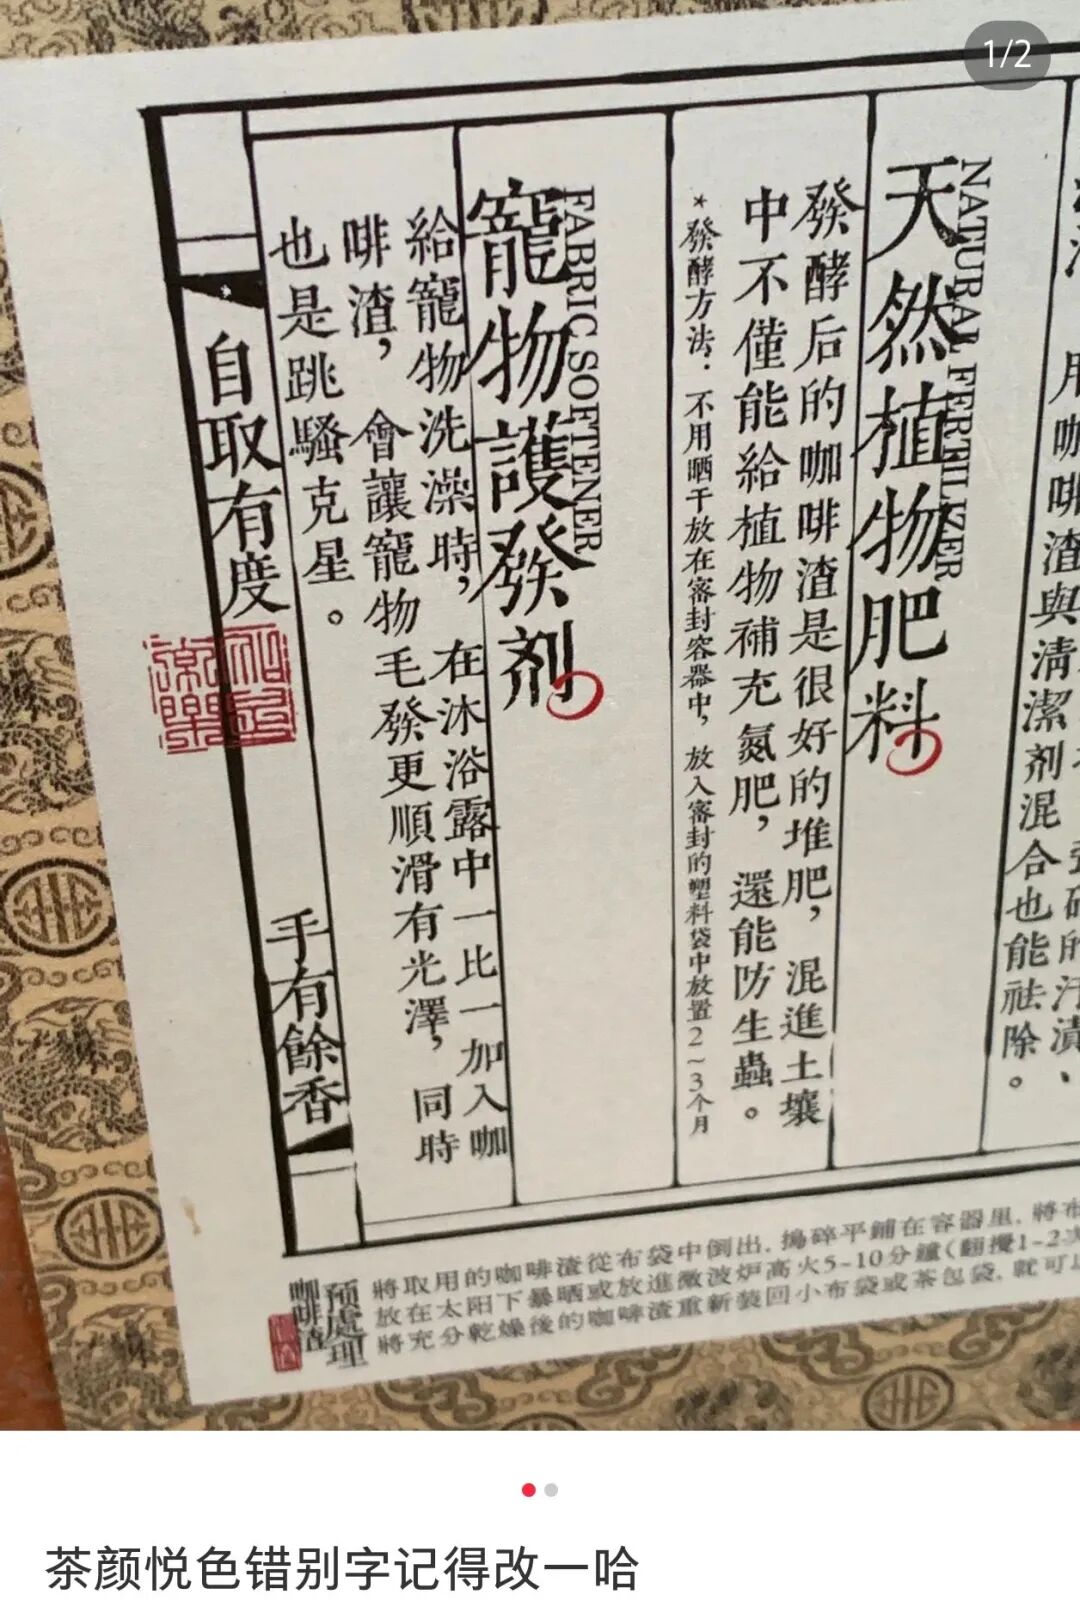 1/2
用咖啡渣與清潔剂混合也能祛除。
NATURAL FERTILIZER
天然植物肥料
發酵后的咖啡渣是很好的堆肥，混進土壤
中不僅能給植物補充氮肥，還能防生蟲。
*發酵方法：不用晒干放在密封容器中，放入密封的塑料袋中放置2~3个月
FABRIC SOFTENER
寵物護發剂
給寵物洗澡時，在沐浴露中一比一加入咖
啡渣，會讓寵物毛發更順滑有光澤，同時
也是跳騷克星。
自取有度 手有餘香
咖啡渣
預處理
將取用的咖啡渣從布袋中倒出，搗碎平鋪在容器里，將布
放在太阳下暴晒或放進微波炉高火5-10分鐘（翻攪1-2次
將充分乾燥後的咖啡渣重新裝回小布袋或茶包袋，就可以
茶颜悦色错别字记得改一哈